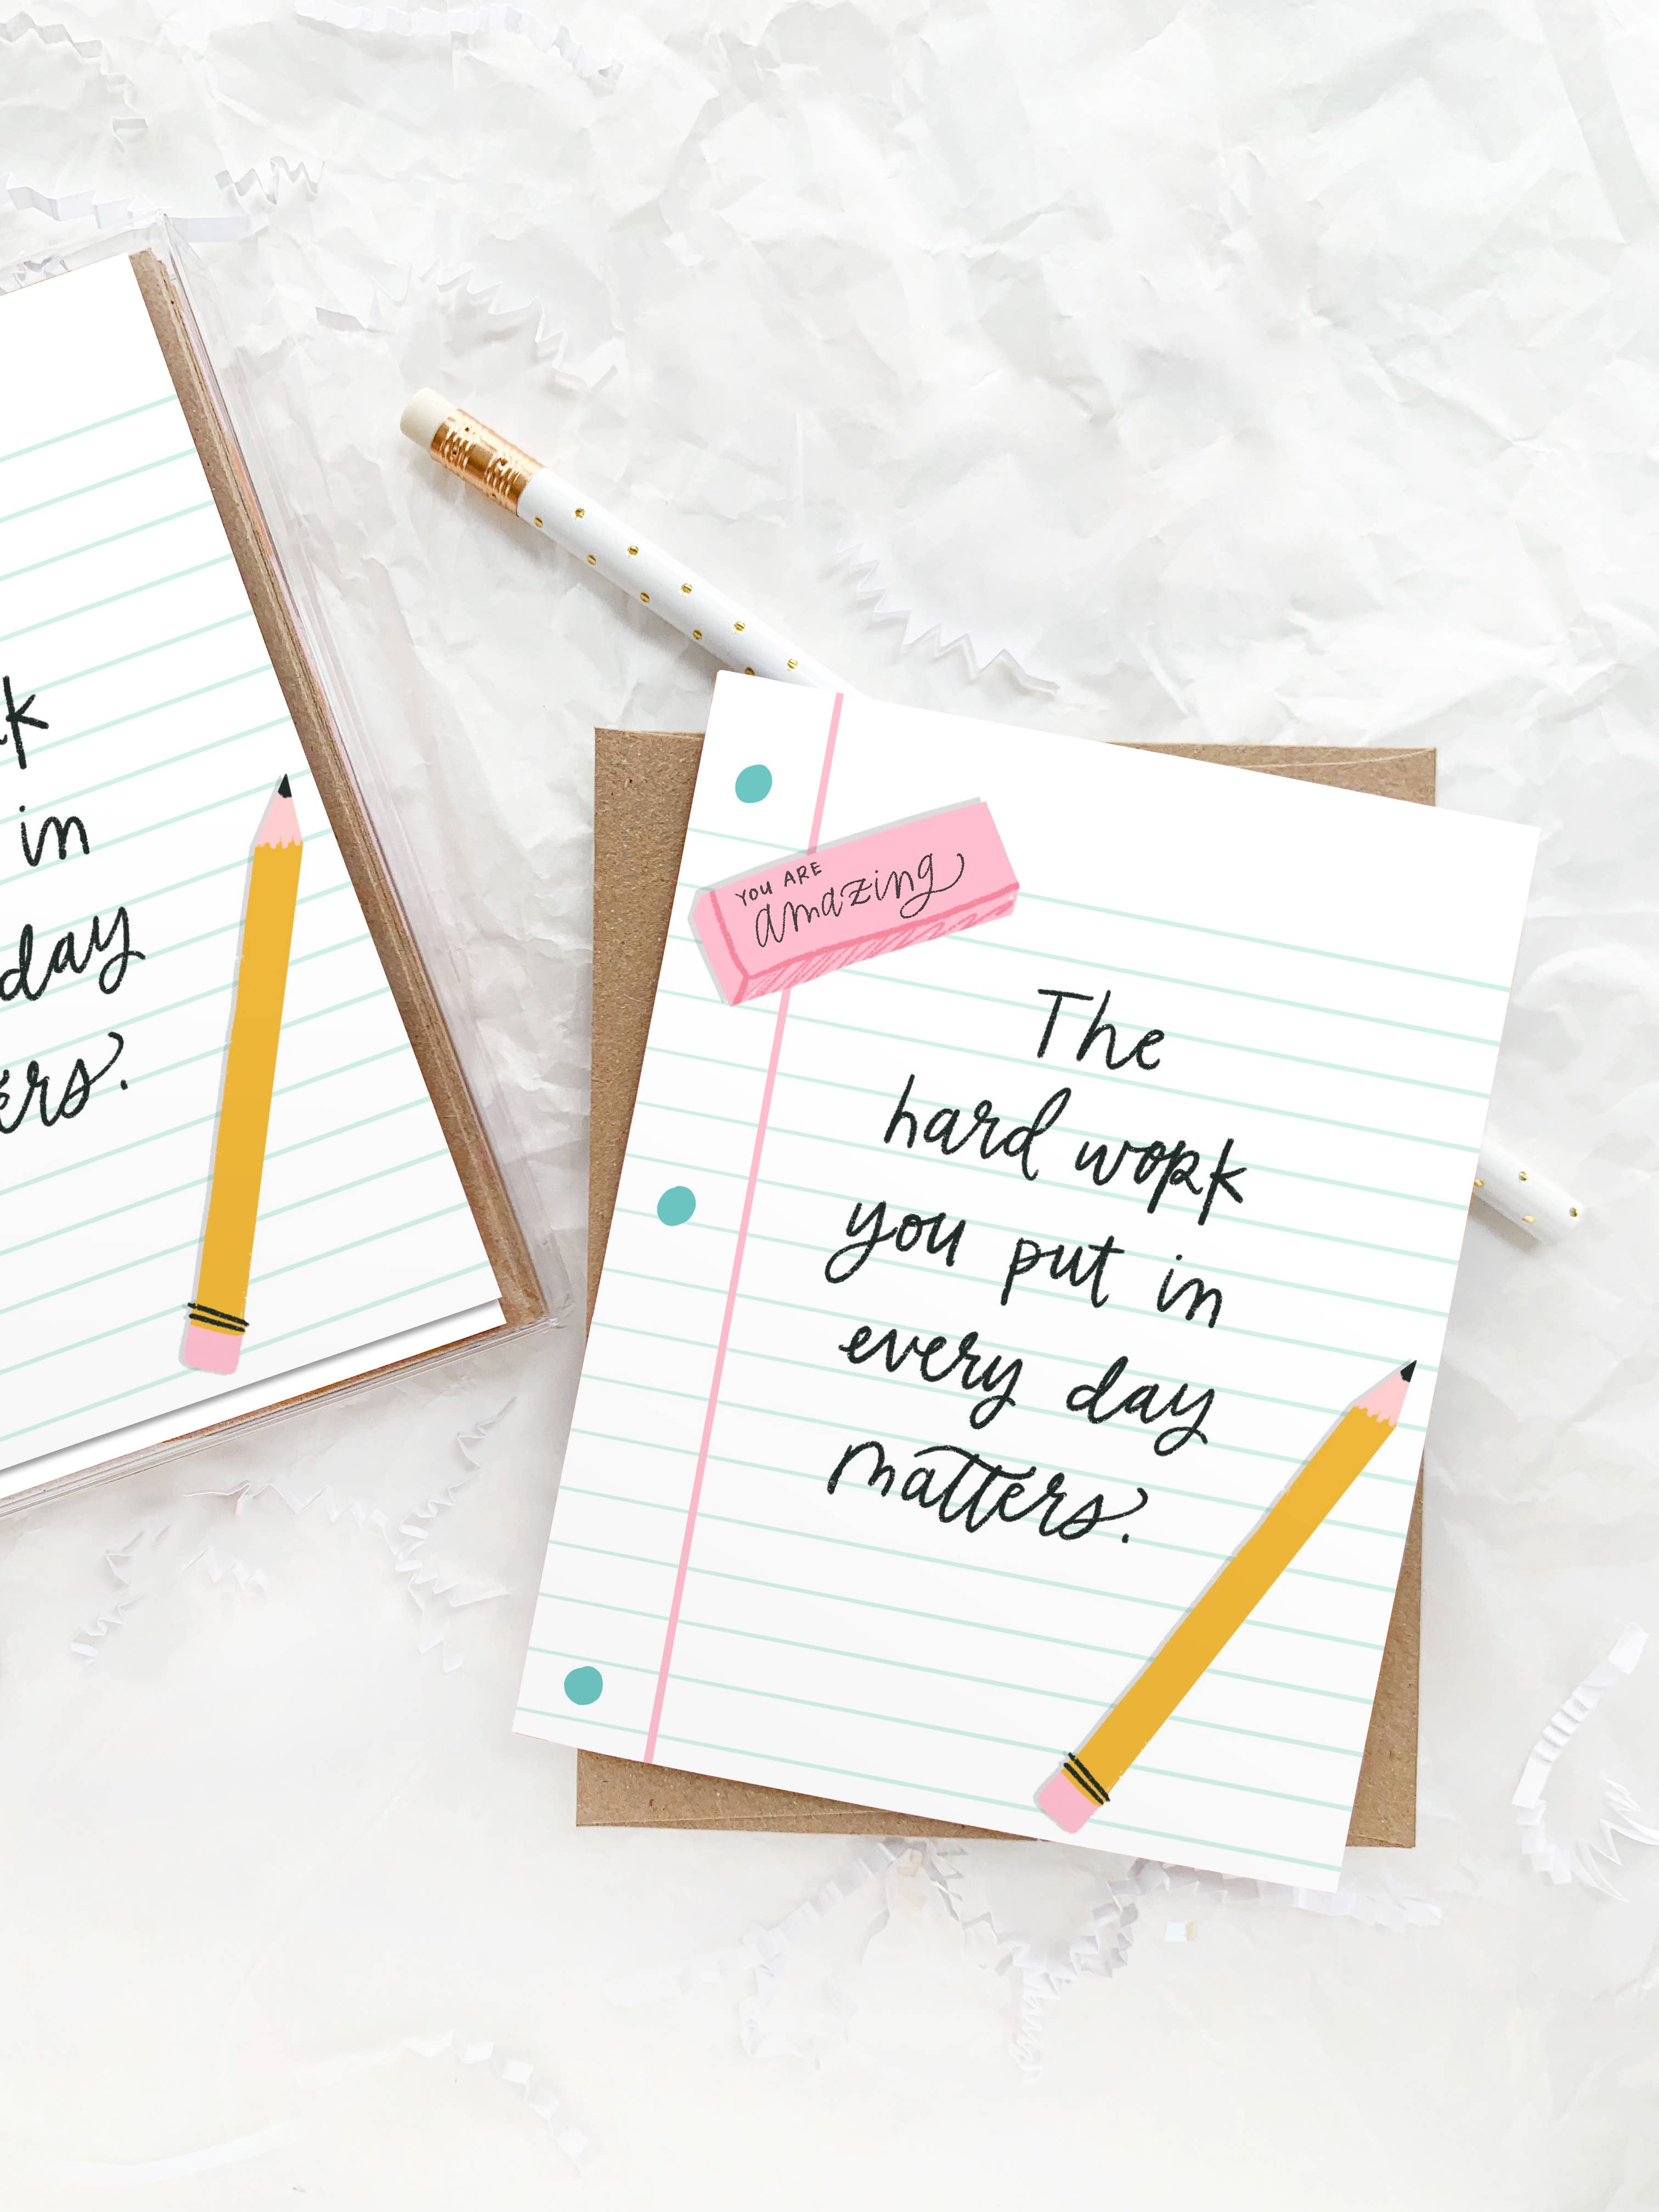 k
in
day
ers.
YOU ARE
amazing
The
hard work
you put in
every day
matters.